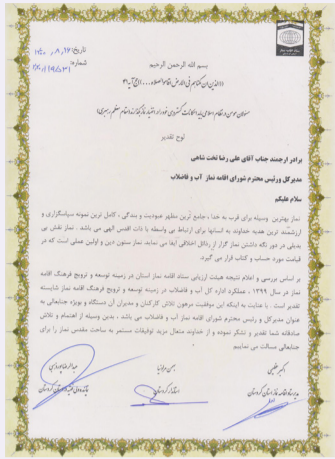 بسم الله الرحمن الرحیم
تاریخ:
شماره:
((الذین ان مکناهم فی الارض اقاموا الصلاه ....)) حج آیه ۴۱
لوح تقدیر
برادر ارجمند جناب آقای علی رضا تخت شاهی
مدیرکل و رئیس محترم شورای اقامه نماز آب و فاضلاب
سلام علیکم
نماز بهترین وسیله برای قرب به خدا ، جامع ترین مظهر عبودیت و بندگی ، کامل ترین نمونه سپاسگزاری و
ارزشمند ترین هدیه خداوند به انسانها برای ارتباط بی واسطه با ذات اقدس الهی می باشد. نماز نقش بی
بدیلی در دور نگه داشتن نماز گزار از رذائل اخلاقی ایفا می نماید. نماز ستون دین و اولین عملی است که در
قیامت مورد حساب و کتاب قرار می گیرد.
بر اساس بررسی و اعلام نتیجه هیئت ارزیابی ستاد اقامه نماز استان در زمینه توسعه و ترویج فرهنگ اقامه
نماز در سال ۱۳۹۹ ، عملکرد اداره کل آب و فاضلاب در زمینه توسعه و ترویج فرهنگ اقامه نماز شایسته
تقدیر است. با عنایت به اینکه این موفقیت مرهون تلاش کارکنان و مدیران آن دستگاه و بویژه جنابعالی به
عنوان مدیرکل و رئیس محترم شورای اقامه نماز آب و فاضلاب می باشد ، بدین وسیله از اهتمام و تلاش
صادقانه شما تقدیر و تشکر نموده و از خداوند متعال مزید توفیقات مستمر به ساحت مقدس نماز را برای
جنابعالی مسألت می نماییم
بهمن مرادنیا
استاندار کردستان